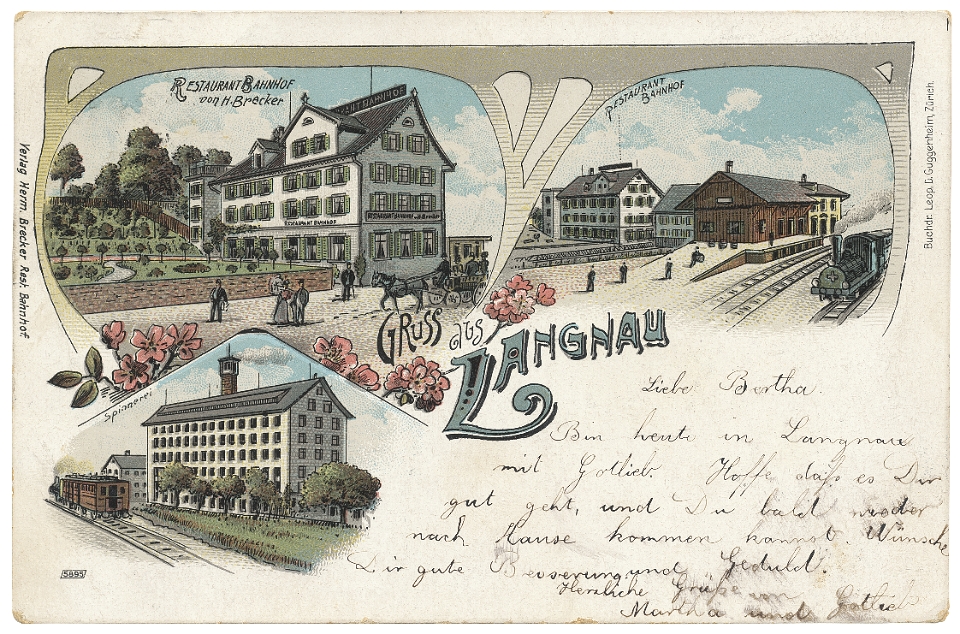 RESTAURANT BAHNHOF
von H. Brecker
RESTAURANT BAHNHOF
RESTAURANT BAHNHOF
RESTAURANT
BAHNHOF
Verlag Herm. Brecker Rest. Bahnhof
Buchdr. Leop. D. Guggenheim, Zürich.
GRUSS aus
LANGNAU
Spinnerei
5895
Liebe Bertha.
Bin heute in Langnau
mit Gotlieb. Hoffe daß es Dir
gut geht, und Du bald wieder
nach Hause kommen kannst. Wünsche
Dir gute Besserung und Geduld.
Herzliche Grüße von
Martha und Gotlieb